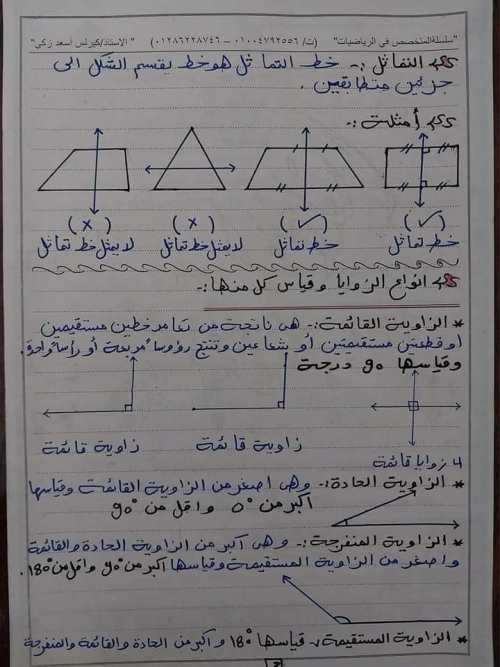 "سلسلة المتخصص في الرياضيات" (ت/ ٠١٠٠٤٧٩٢٥٥٦ – ٠١٢٨٦٢٢٨٧٤٦) "الاستاذ/كيرلس أسعد زكى"
التماثل :- خط التماثل هو خط يقسم الشكل الى
جزئين متطابقين .
أمثلة :-
(✓) (✓) (×) (×)
خط تماثل خط تماثل لا يمثل خط تماثل لا يمثل خط تماثل
انواع الزوايا وقياس كل منها :-
* الزاوية القائمة :- هى ناتجة من تعامد خطين مستقيمين
او قطعتين مستقيمتين أو شعاعين وتنتج رؤوسا مربعة أو رأسا واحدة .
وقياسها 90 درجة
4 زوايا قائمة زاوية قائمة زاوية قائمة
* الزاوية الحادة :- وهى اصغر من الزاوية القائمة وقياسها
اكبر من 0° واقل من 90°
* الزاوية المنفرجة :- وهى أكبر من الزاوية الحادة والقائمة
واصغر من الزاوية المستقيمة وقياسها اكبر من 90° واقل من 180° .
* الزاوية المستقيمة :- قياسها 180° واكبر من الحادة والقائمة والمنفرجة